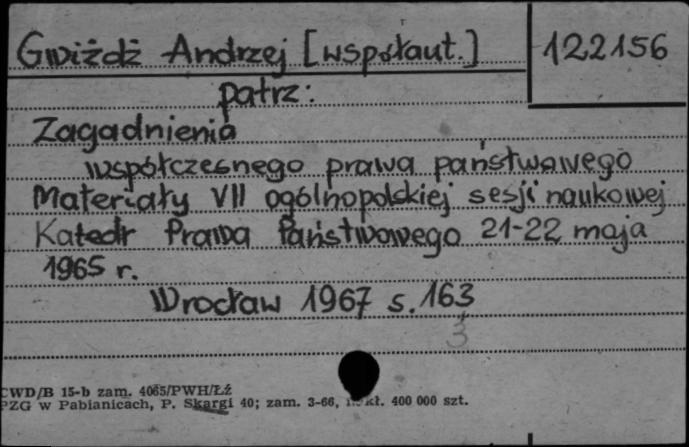 Gwiżdż Andrzej [współaut.] 122156
patrz:
Zagadnienia
współczesnego prawa państwowego
Materiały VII ogólnopolskiej sesji naukowej
Katedr Prawa Państwowego 21-22 maja
1965 r.
Wrocław 1967 s. 163
3
CWD/B 15-b zam. 4065/PWH/Łż
PZG w Pabianicach, P. Skargi 40; zam. 3-66, kl. 400 000 szt.